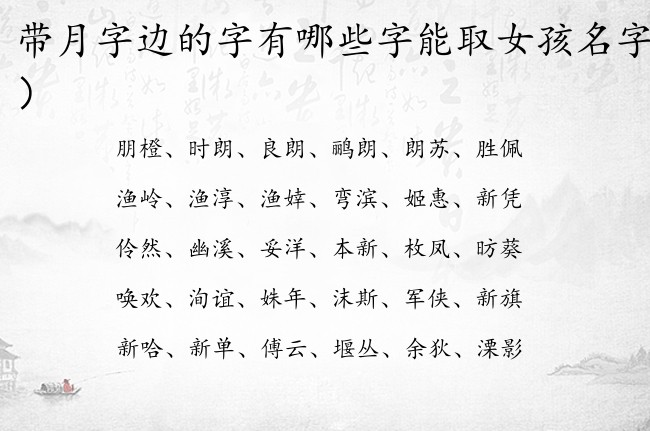 带月字边的字有哪些字能取女孩名字
）
朋橙、时朗、良朗、鹂朗、朗苏、胜佩
渔岭、渔淳、渔婞、弯滨、姬惠、新凭
伶然、幽溪、妥洋、本新、枚凤、昉葵
唤欢、洵谊、姝年、沫斯、军侠、新旗
新哈、新单、傅云、堰丛、余狄、溧影